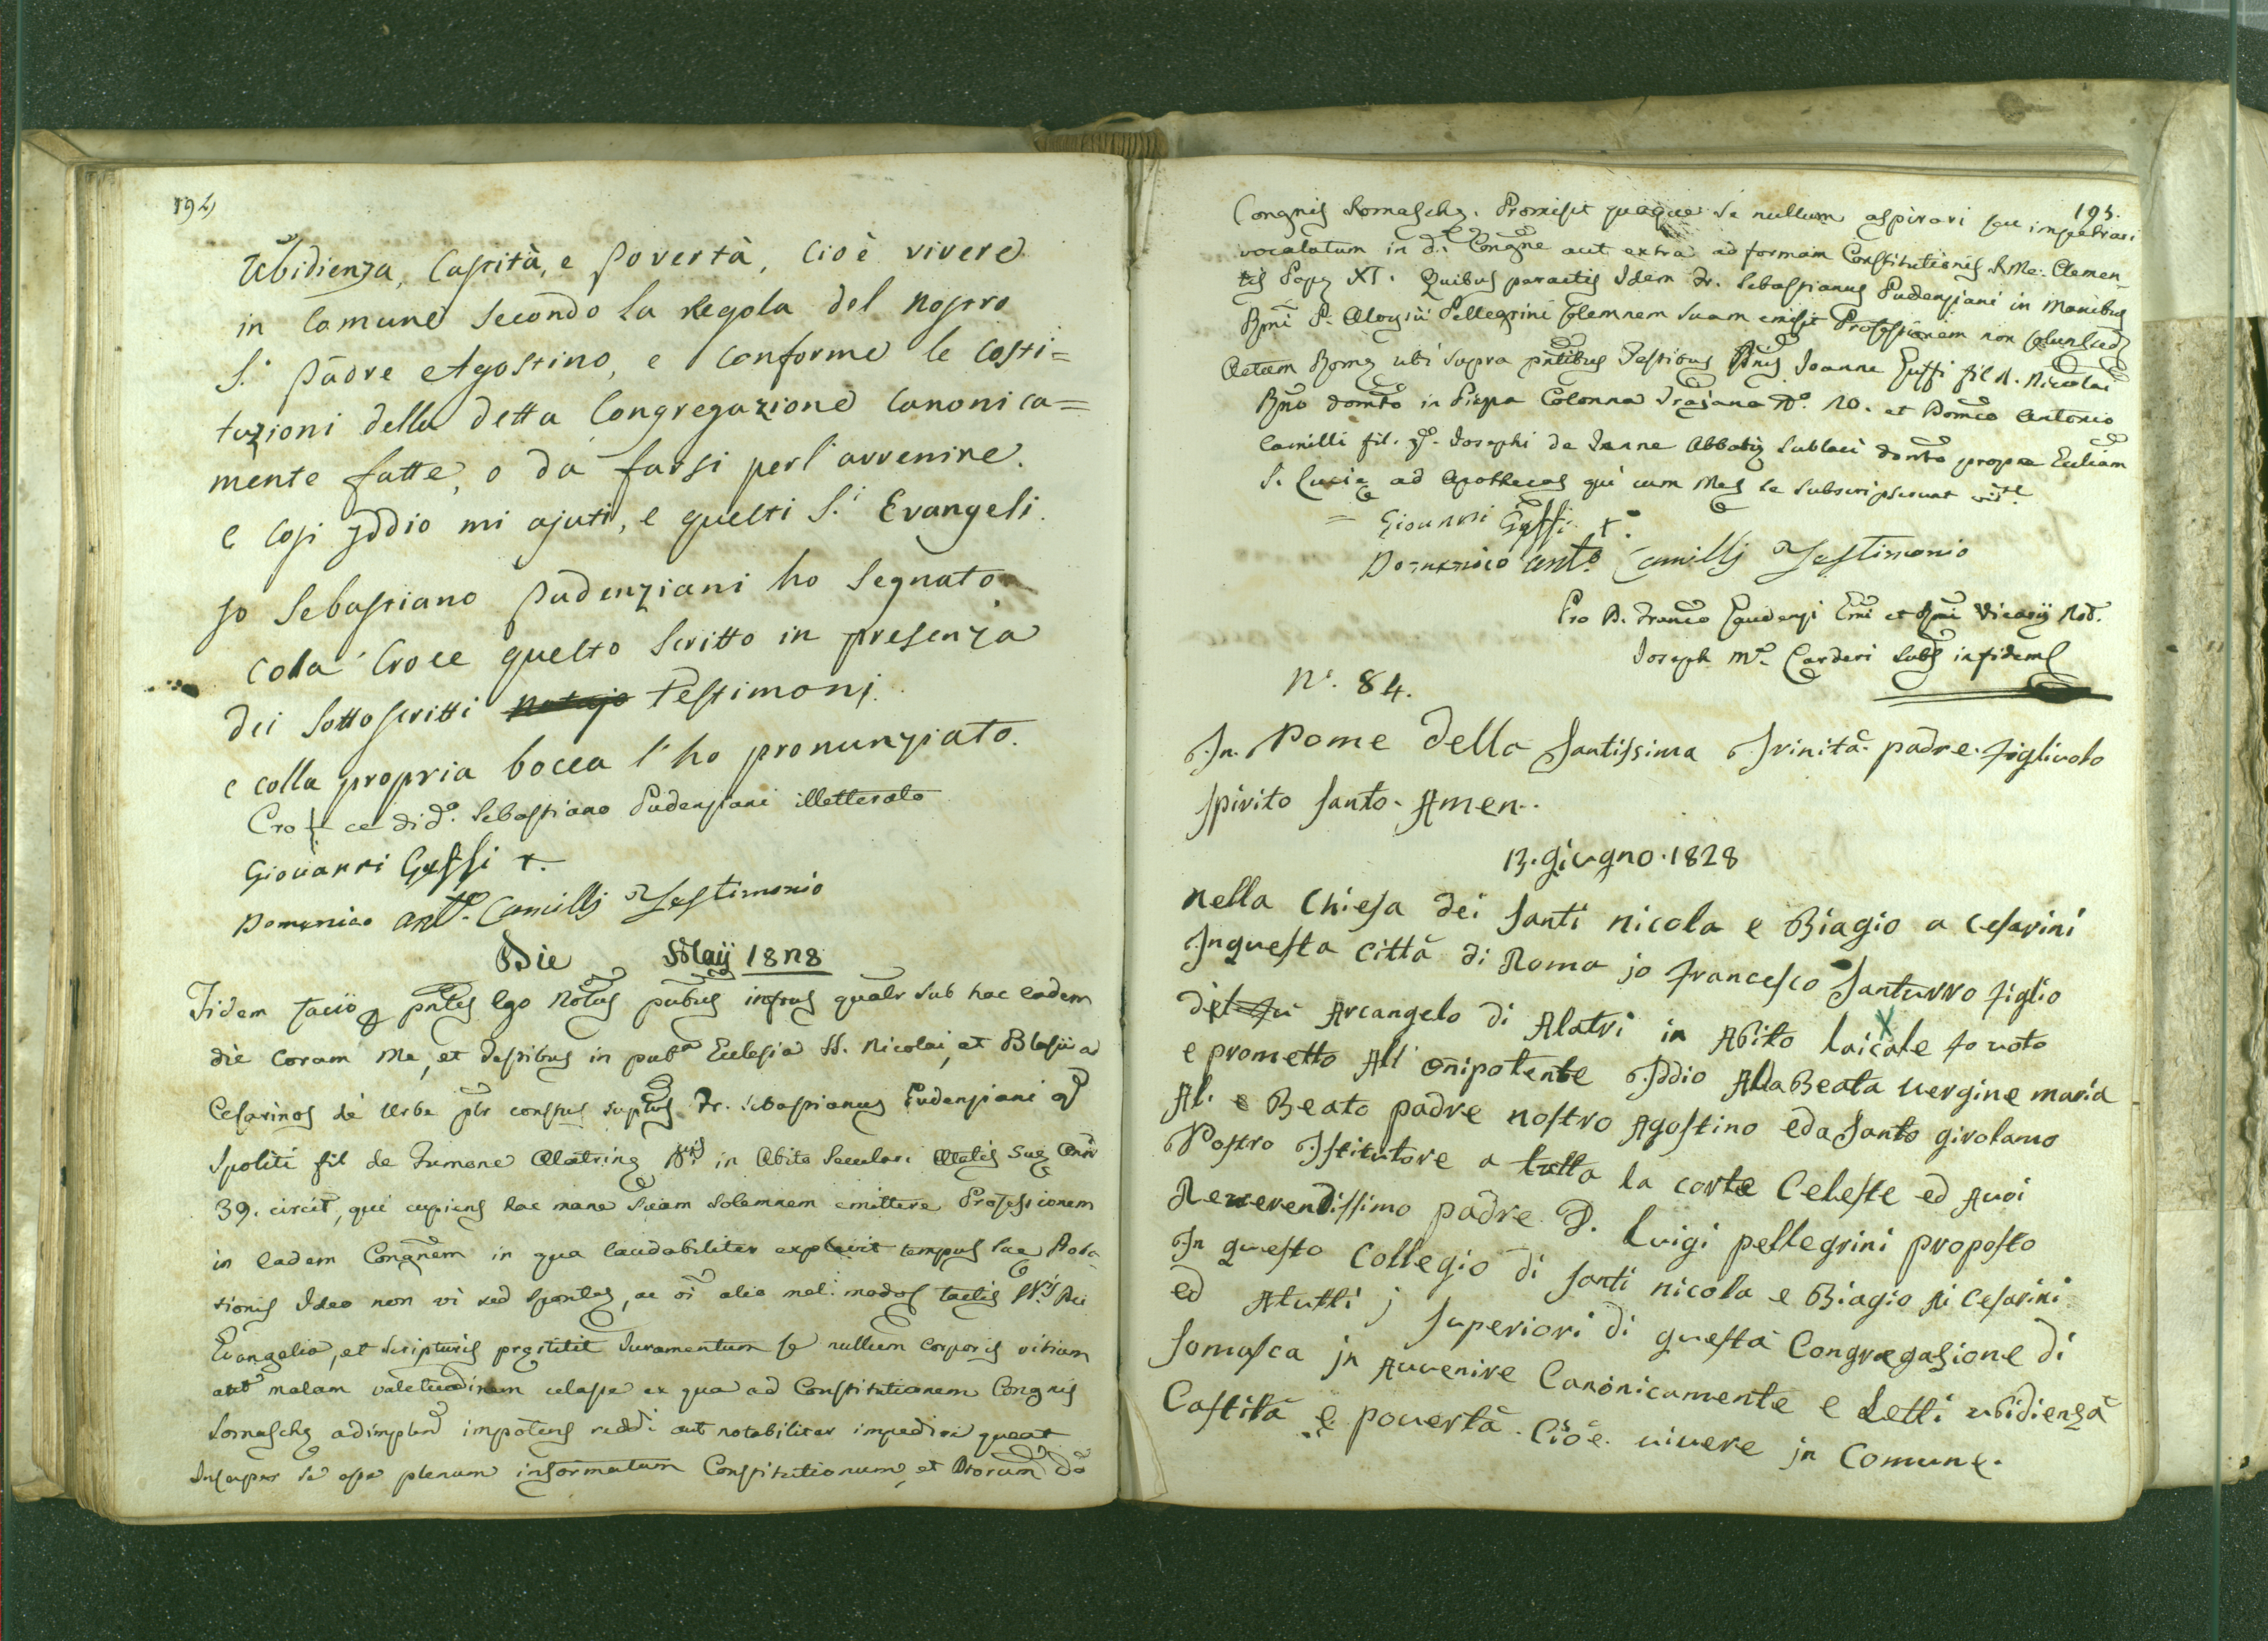 194
Ubidienza, Castità, e Povertà, Cioè vivere
in Comune secondo la Regola del nostro
S. Padre Agostino, e conforme le Costi=
tuzioni della detta Congregazione Canonica=
mente fatte, o da farsi per l'avvenire.
e Cosi Iddio mi ajuti, e questi S.i Evangeli.
Jo Sebastiano Pudenziani ho segnato
cola Croce questo scritto in presenza
dei sottoscritti notajo Testimonj
e colla propria bocca l'ho pronunziato.
Cro + ce di d.o Sebastiano Pudenziani illetterato
Giovanni Gussi t.
Domenico ant.o Camillj Testimonio
Die Maij 1828
Fidem facio p pntes Ego Notus pubus infrus qualr sub hac eadem
die coram Me, et Testibus in pub.a Ecclesia SS. Nicolai, et Blasii ad
Cesarinos de Urbe plr constus suptus Fr. Sebastianus Pudenziani q
Spoliti fil de Fumone Alatrine in Abito Seculari Ætatis Sue Annor
39. circit, qui cupiens hac mane suam solemnem emittere Professionem
in eadem Congnem in qua laudabiliter explevit tempus sae Proba
tionis Ideo non vi sed sponte, ac oi alio mel: modo tactis Dei
Evangelia, et scripturis prestitit Juramentum se nullum corporis vitium
aut malam valetudinem celasse ex qua ad Constitutionem Congnis
Somasche adimplend impotens reddi aut notabiliter impediri queat
Insuper se esse plenum informatum Constitutionum, et
195.
Congnis Somasche. Promisit quoque se nullum aspirari seu impetrari
vocalatum in d.a Congne aut extra ad formam Constitutionis S. Me: Clemen-
tis Pape XI. Quibus peractis Idem Fr. Sebastianus Pudenziani in Manibus
Rmi P. Aloysii Pellegrini solemnem suam emisit Professionem non solum sed
Actum Rome ubi supra pntibus Testibus Joanne Gussi fil. Nicolai
Rmo domto in Piazza Colonna Trajana N.o 10. et Domco Antonio
Camilli fil. q. Josephi de Jenne Abbatie Sublaci domto prope Ecliam
S. Lucie ad Apothecas qui cum Me se subscripserunt
= Giovanni Gussi t.
Domenico ant.o Camillj Testimonio
Pro D. Franco Gaudenzi Emi et Rmi Vicarij Not.
Joseph M.a Carderi Subs in fidem
N.o 84.
In Nome della Santissima Trinità padre figliuolo
spirito santo. Amen.
13. giugno. 1828
nella Chiesa dei santi nicola e Biagio a cesarini
Inquesta città di Roma jo francesco Santurro figlio
del fu Arcangelo di Alatri in Abito laicale fo voto
e prometto All' onipotente Iddio Alla Beata vergine maria
Al. e Beato padre nostro Agostino eda Santo girolamo
Nostro Istitutore a tutta la corte Celeste ed Avoi
Reverendissimo padre D. Luigi pellegrini proposto
In questo Collegio di santi nicola e Biagio di cesarini
ed Atutti j superiori di questa Congregazione di
somasca jn Avvenire Canonicamente e Letti ubidienza
Castità e povertà. Cioè. vivere jn Comune.